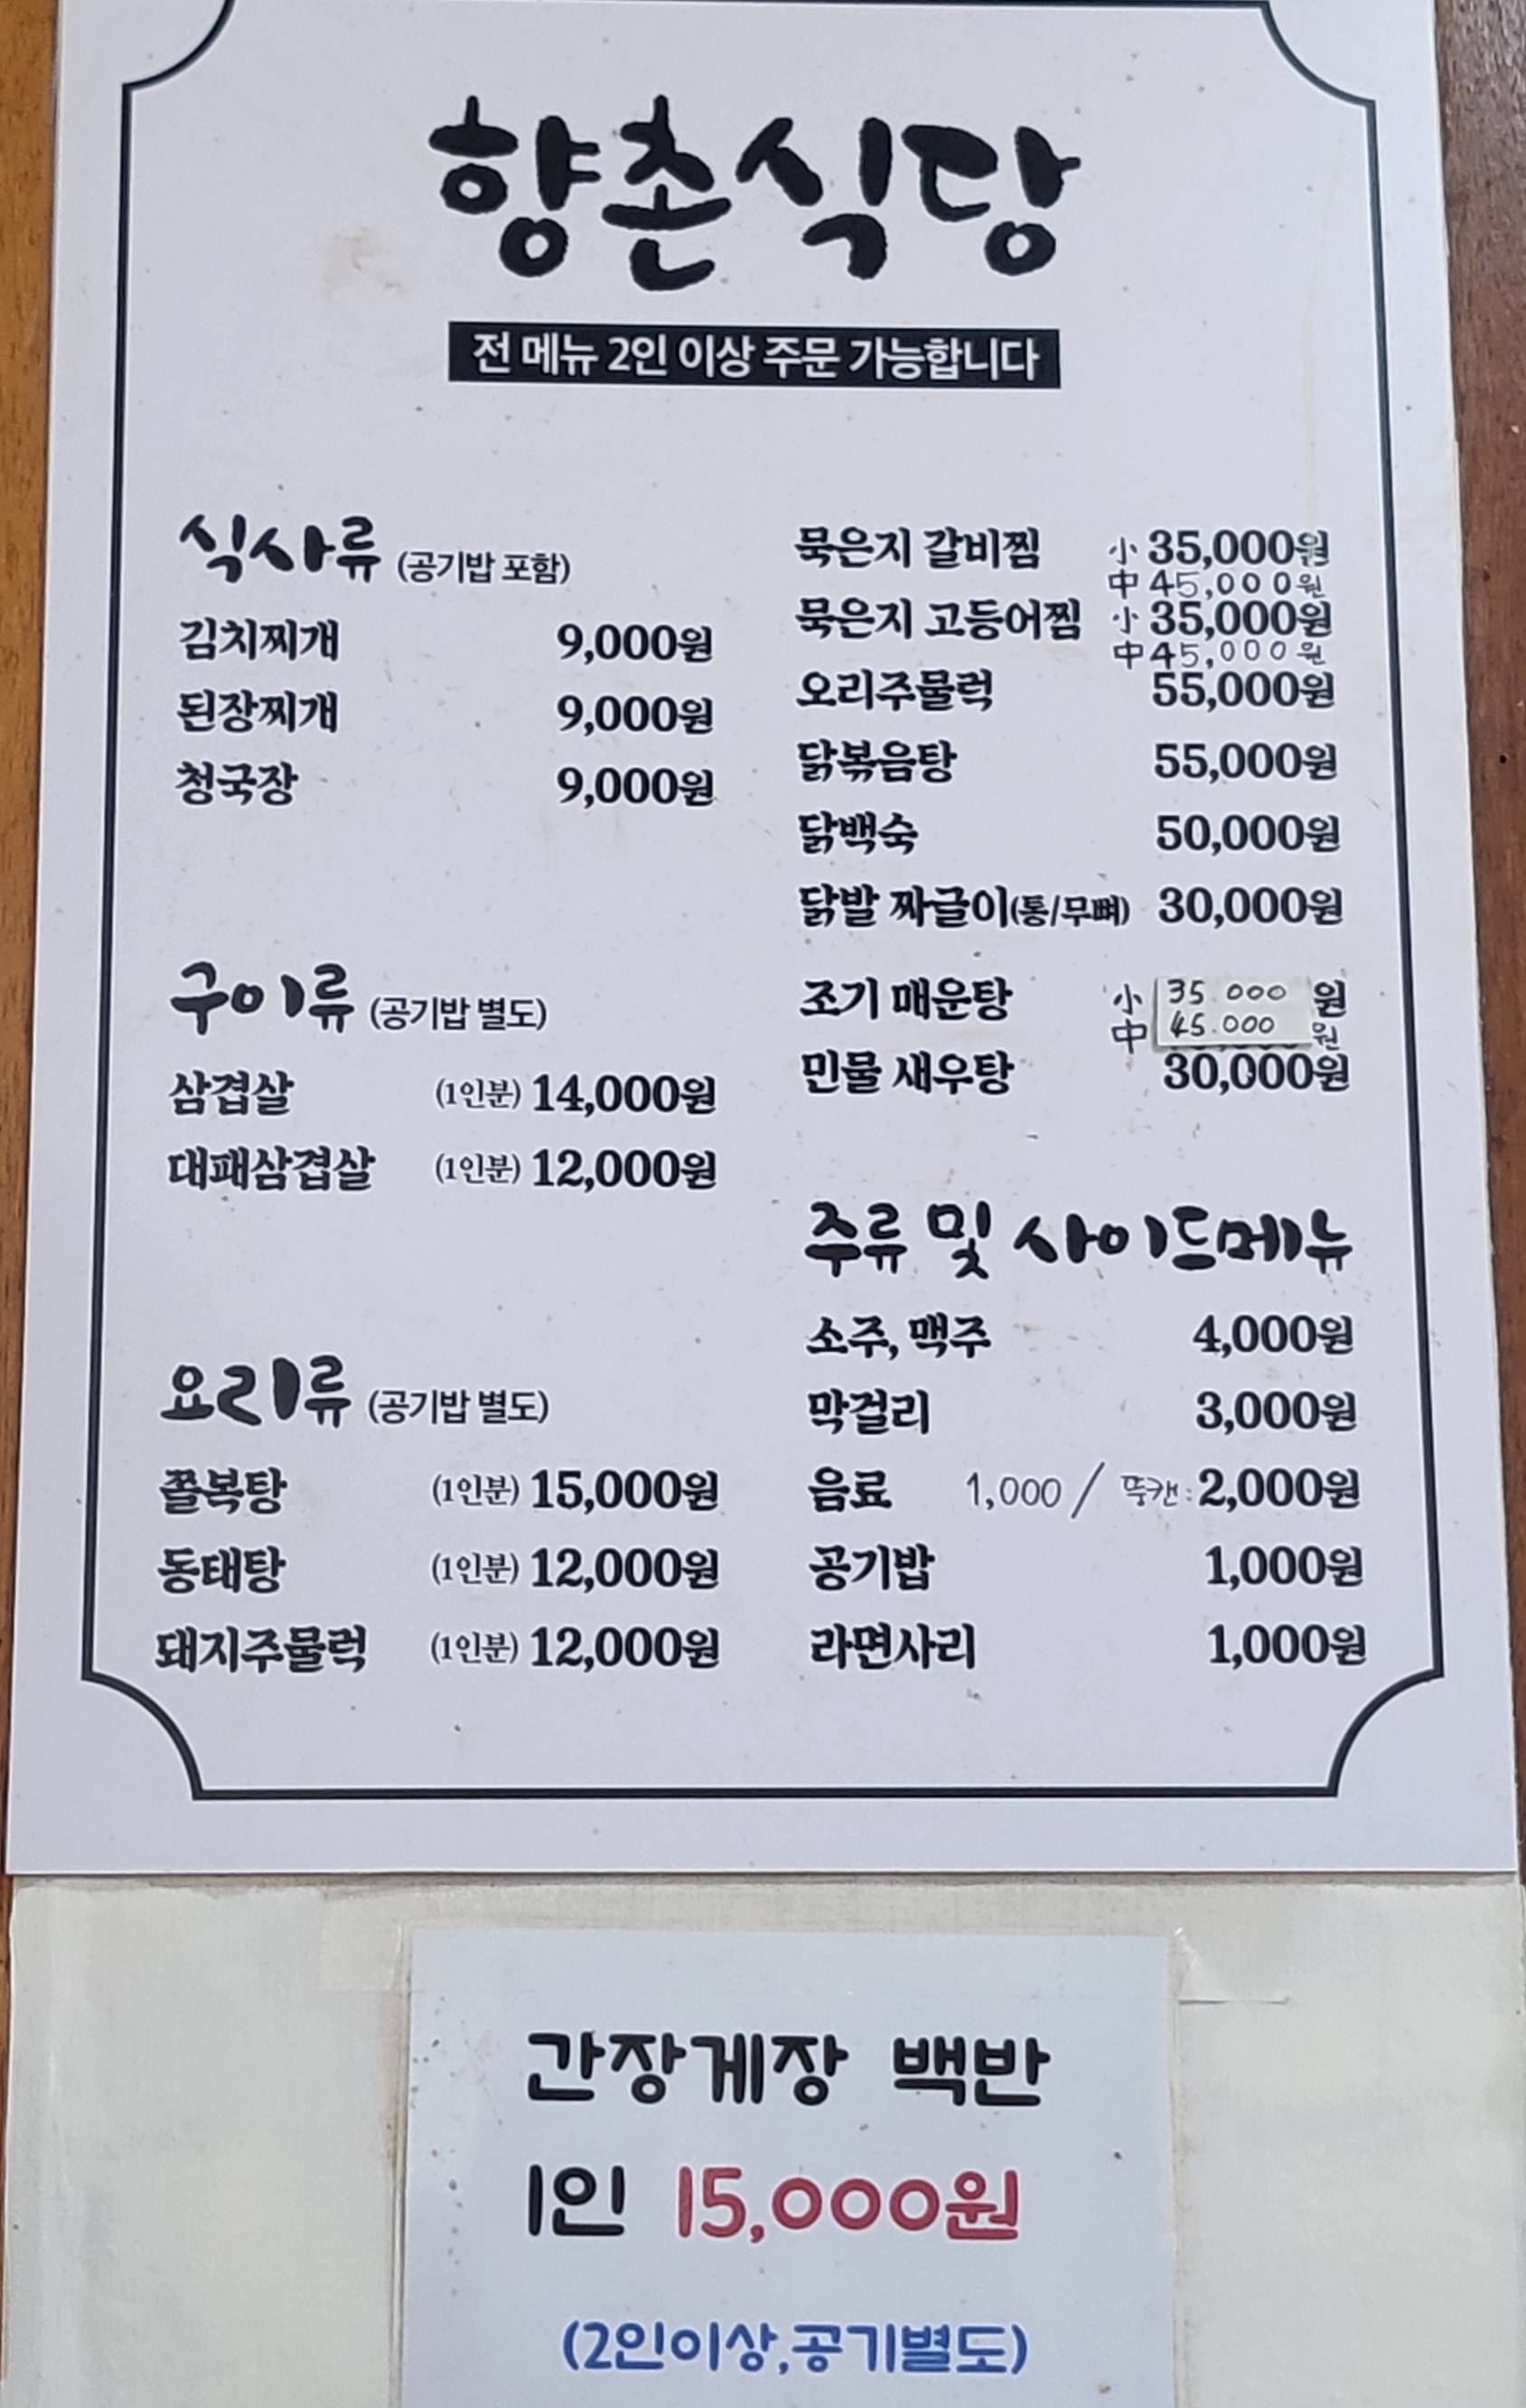 향촌식당
전 메뉴 2인 이상 주문 가능합니다
식사류 (공기밥 포함)
김치찌개 9,000원
된장찌개 9,000원
청국장 9,000원
구이류 (공기밥 별도)
삼겹살 (1인분) 14,000원
대패삼겹살 (1인분) 12,000원
요리류 (공기밥 별도)
쫄복탕 (1인분) 15,000원
동태탕 (1인분) 12,000원
돼지주물럭 (1인분) 12,000원
묵은지 갈비찜 小 35,000원
中 45,000원
묵은지 고등어찜 小 35,000원
中 45,000원
오리주물럭 55,000원
닭볶음탕 55,000원
닭백숙 50,000원
닭발 짜글이(통/무뼈) 30,000원
조기 매운탕 小 35.000 원
中 45.000 원
민물 새우탕 30,000원
주류 및 사이드메뉴
소주, 맥주 4,000원
막걸리 3,000원
음료 1,000 / 뚱캔: 2,000원
공기밥 1,000원
라면사리 1,000원
간장게장 백반
1인 15,000원
(2인이상,공기별도)